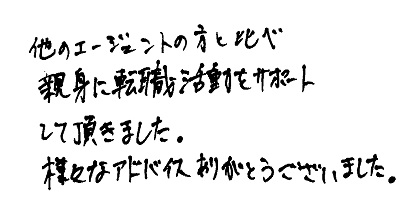 他のエージェントの方と比べ
親身に転職活動をサポート
して頂きました。
様々なアドバイスありがとうございました。